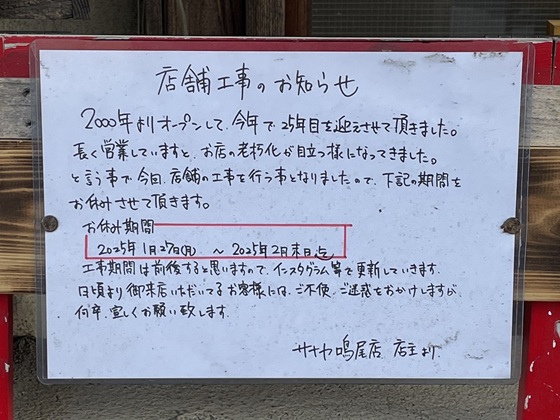 店舗工事のお知らせ
2000年よりオープンして、今年で25年目を迎えさせて頂きました。
長く営業していますと、お店の老朽化が目立つ様になってきました。
と言う事で今回、店舗の工事を行う事となりましたので、下記の期間を
お休みさせて頂きます。
お休み期間
2025年1月27日(月) ～ 2025年2月末日迄
工事期間は前後すると思いますので、インスタグラム等で更新していきます。
日頃より御来店いただいてるお客様には、ご不便、ご迷惑をおかけしますが
何卒、宜しくお願い致します。
鳴尾店 店主より